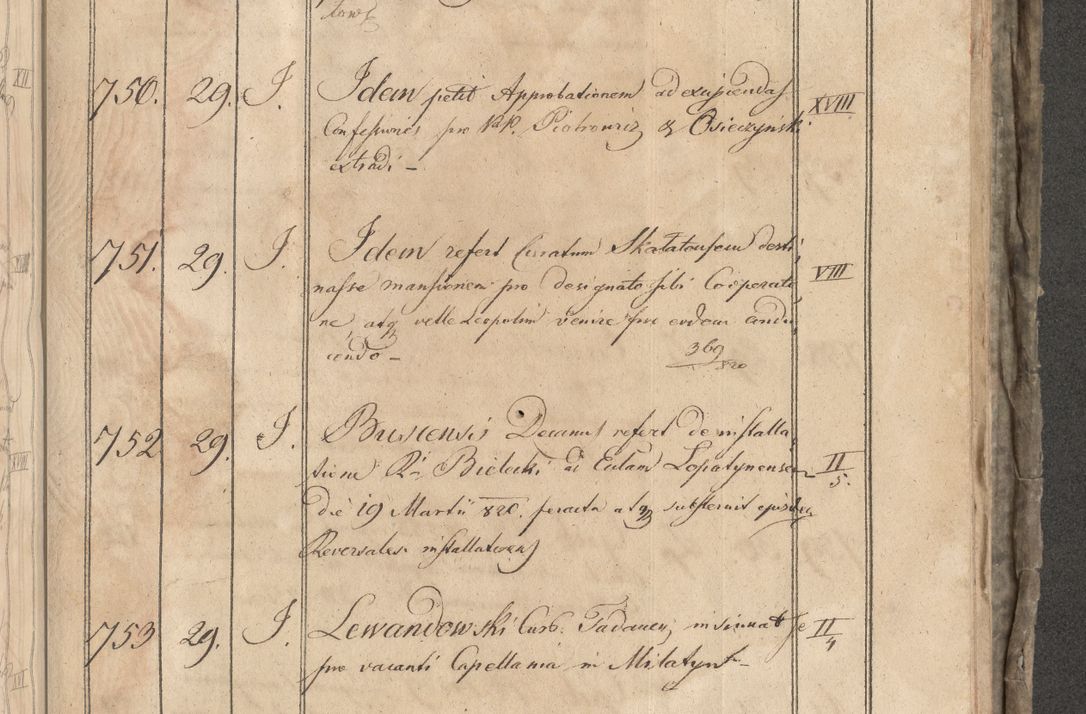 towf
750. 29. J. Idem petit Approbationem ad excipiendas XVIII
Confessiones pro RR. Piotrowicz & Osieczyński
extradi –
751. 29. J. Idem refert Curatum Skałatensem desti VIII
nasse mansionem pro designato sibi Cooperato
re, atq velle Leopolim venire pro eodem condu
cendo –
369
820
752 29. J. Buscensis Decanus refert de installa
tione Rdi Bielecki ad Ecclam Lopatynensem II/5.
die 19 Martii 820. peracta atq substernit ejusdem
Reversales installatorum
753 29. J. Lewandowski Curb. Tadanien; insinuat se II/4
pro vacanti Capellania in Milatyn –